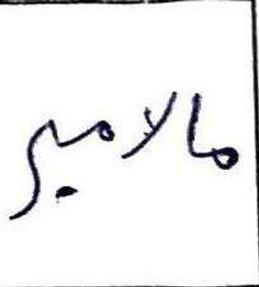 مالامير